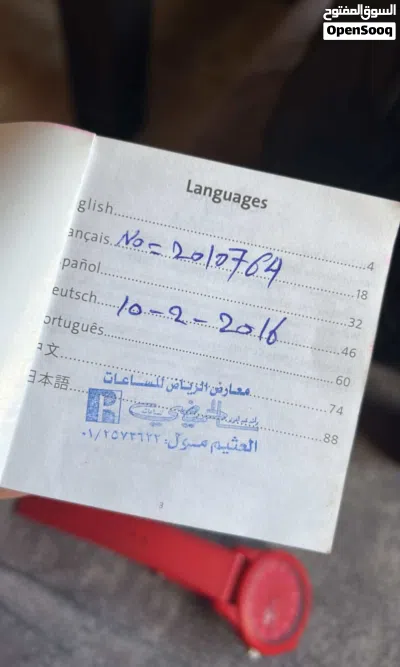 السوق المفتوح
OpenSooq
Languages
glish 4
ançais 18
No = 2010764
pañol 32
eutsch 46
10-2-2016
ortuguês 60
中文 74
日本語 88
معارض الرياض للساعات
العثيم مول: ٠١/٢٥٧٣٦٢٢